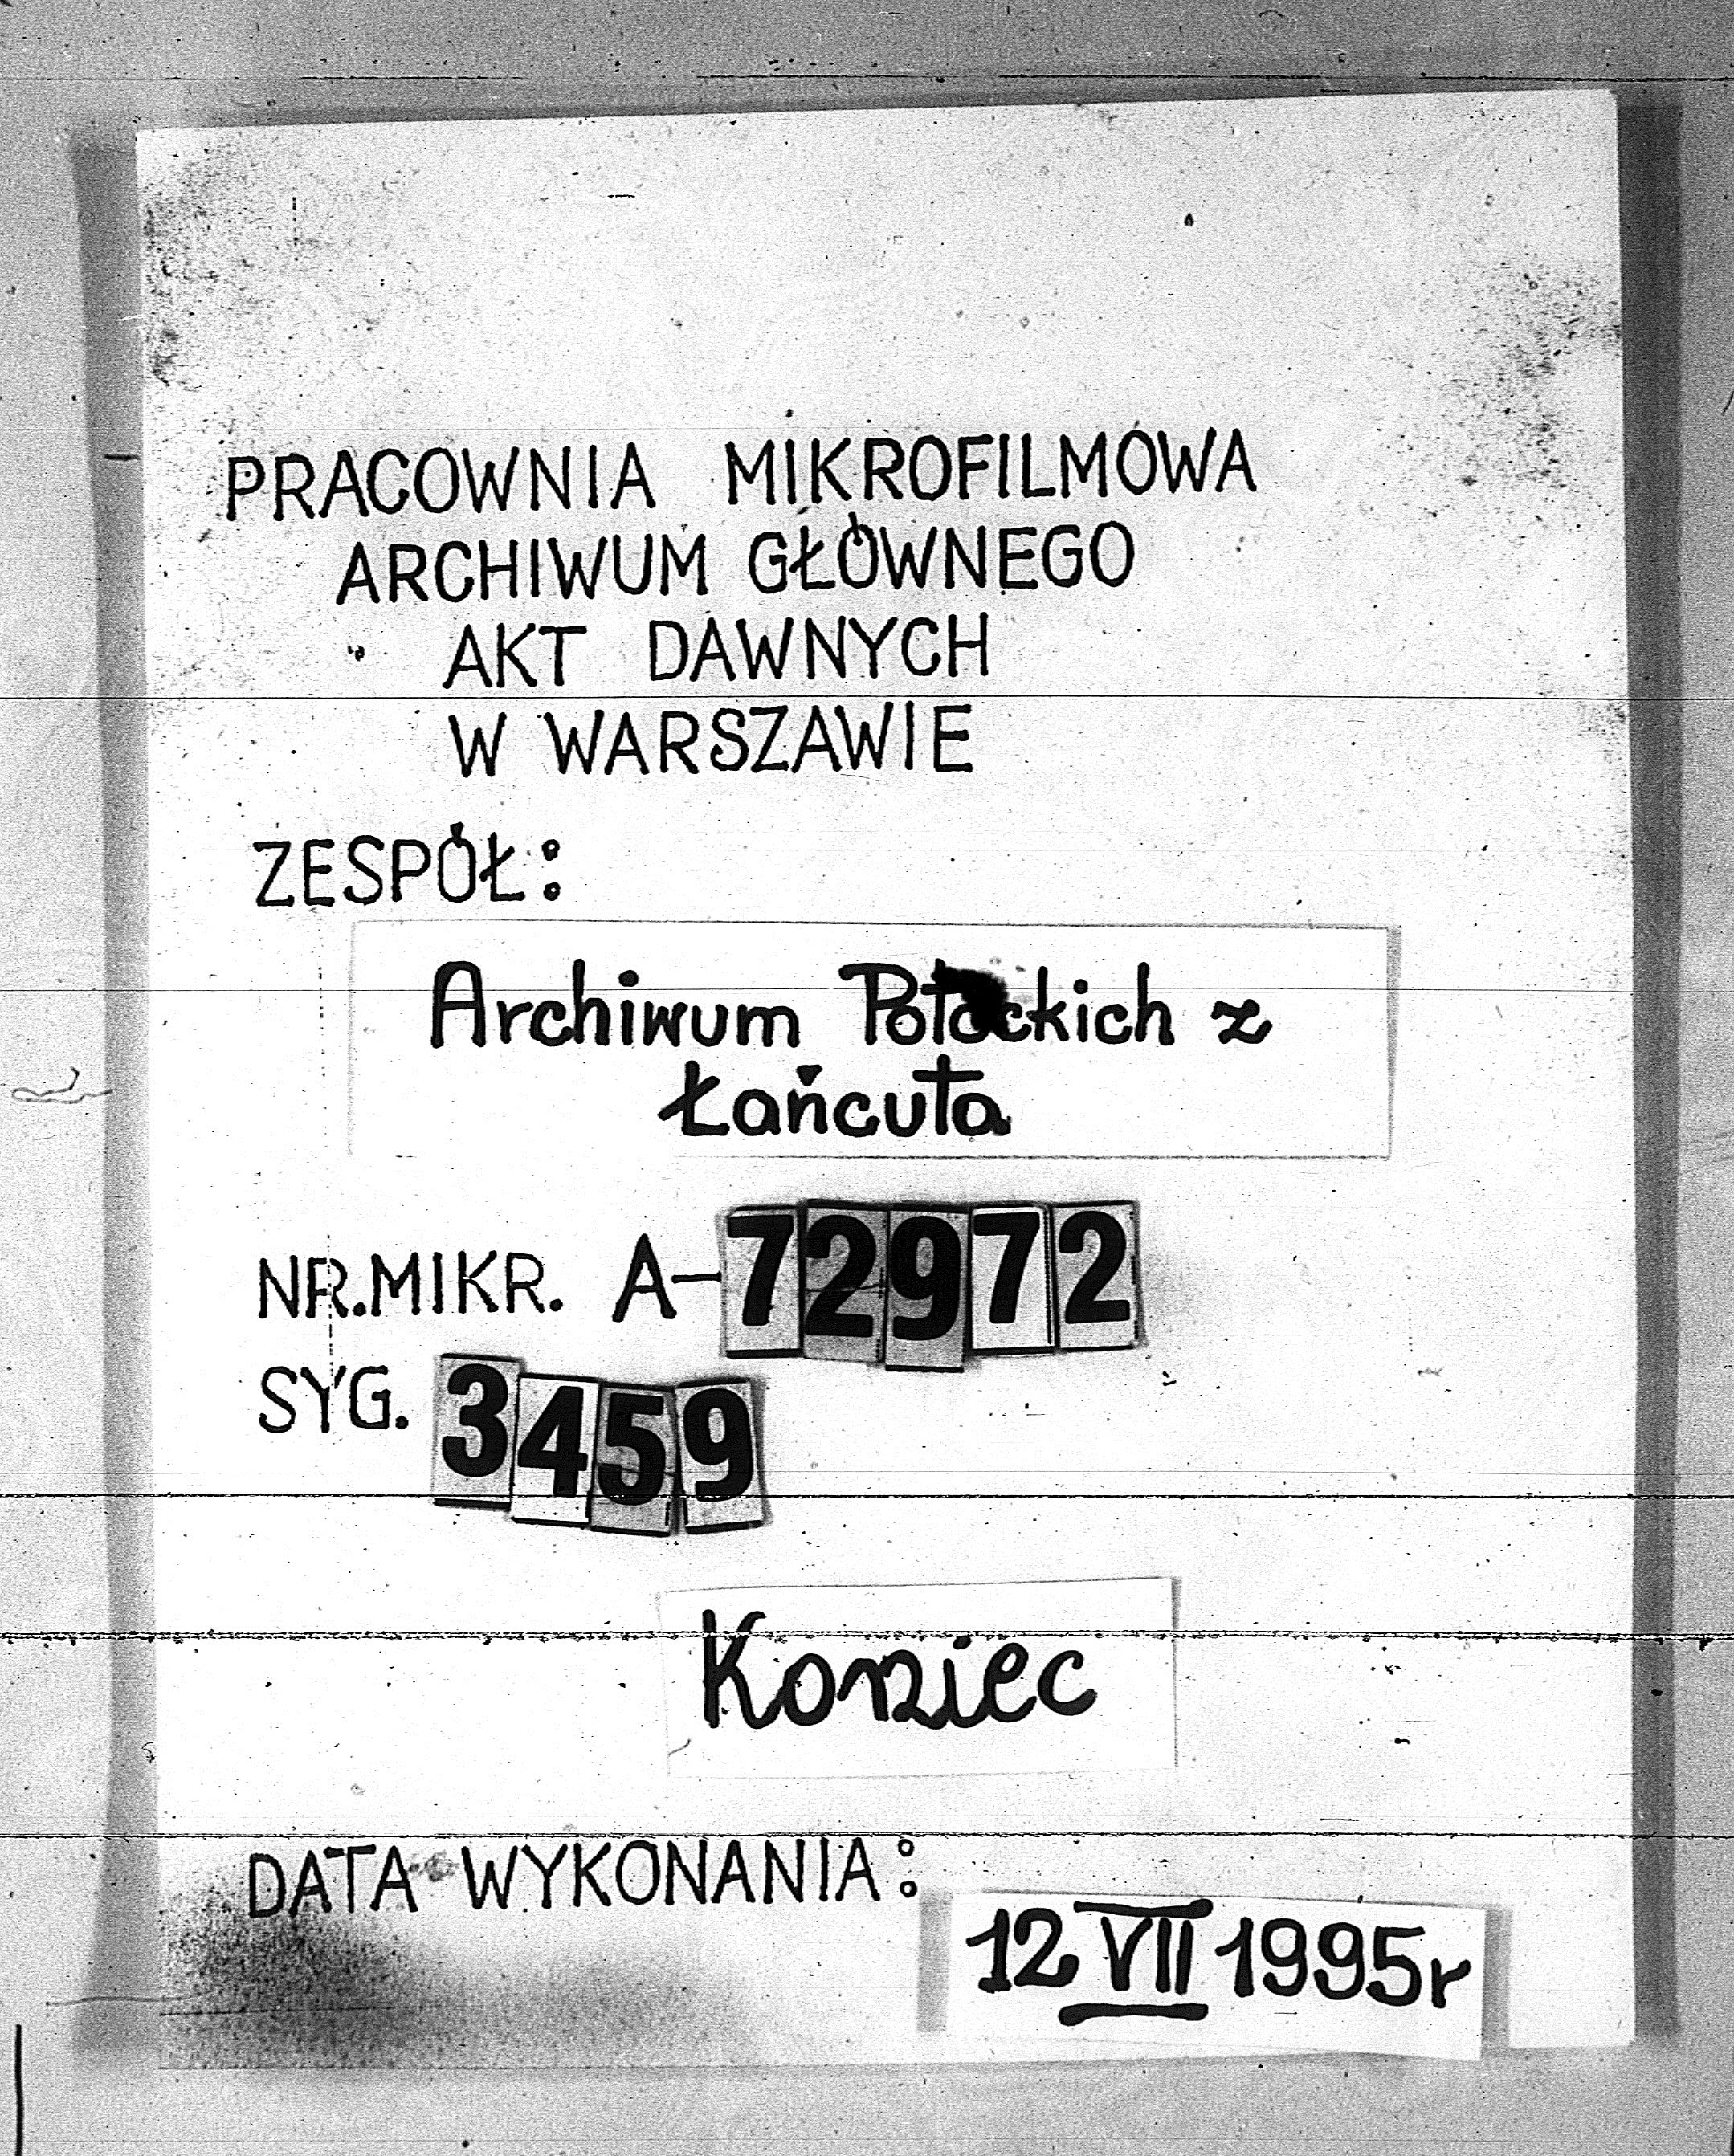 PRACOWNIA MIKROFILMOWA
ARCHIWUM GŁÓWNEGO
AKT DAWNYCH
W WARSZAWIE
ZESPÓŁ:
Archiwum Potockich z
Łańcuta
NR.MIKR. A-72972
SYG. 3459
Koniec
DATA WYKONANIA:
12 VII 1995r